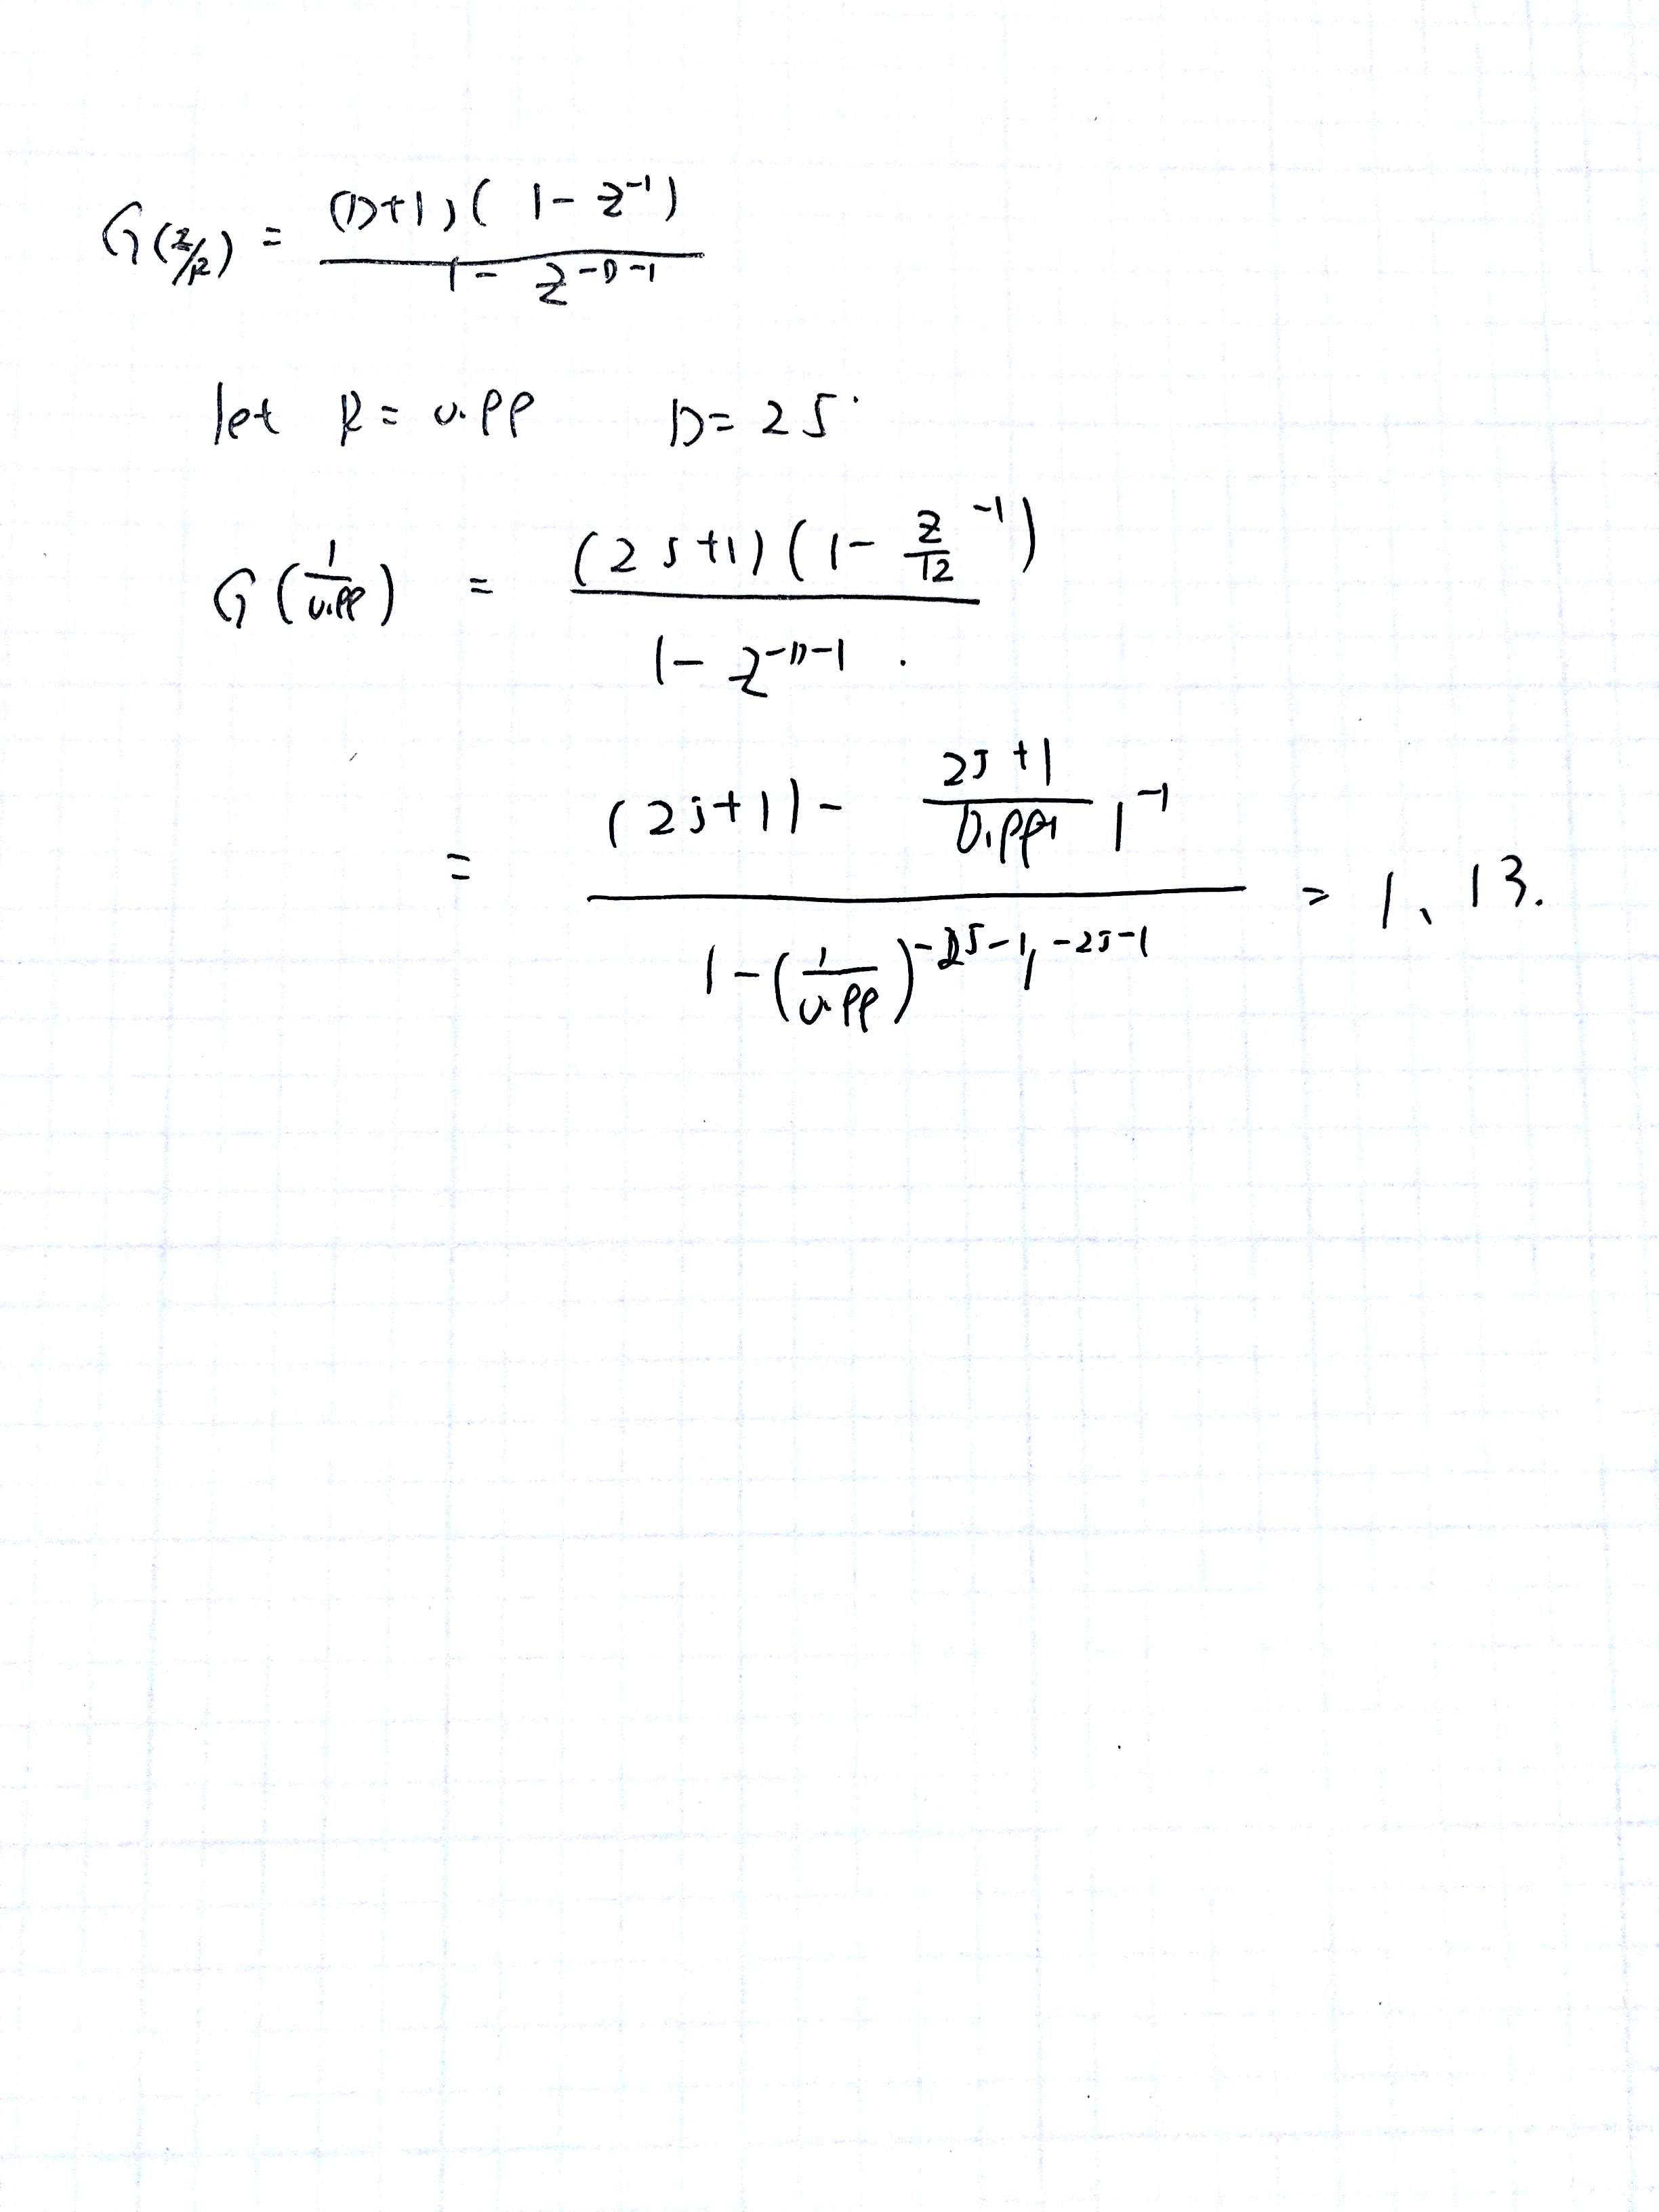 G(z/R) = (D+1)(1-z^-1) / 1-z^-D-1
let R=0.99 D=25.
G(1/0.99) = (25+1)(1-z/R^-1) / 1-z^-D-1.
= (25+1)-25+1/0.99 1^-1 / 1-(1/0.99)^-25-1 1^-25-1 = 1.13.